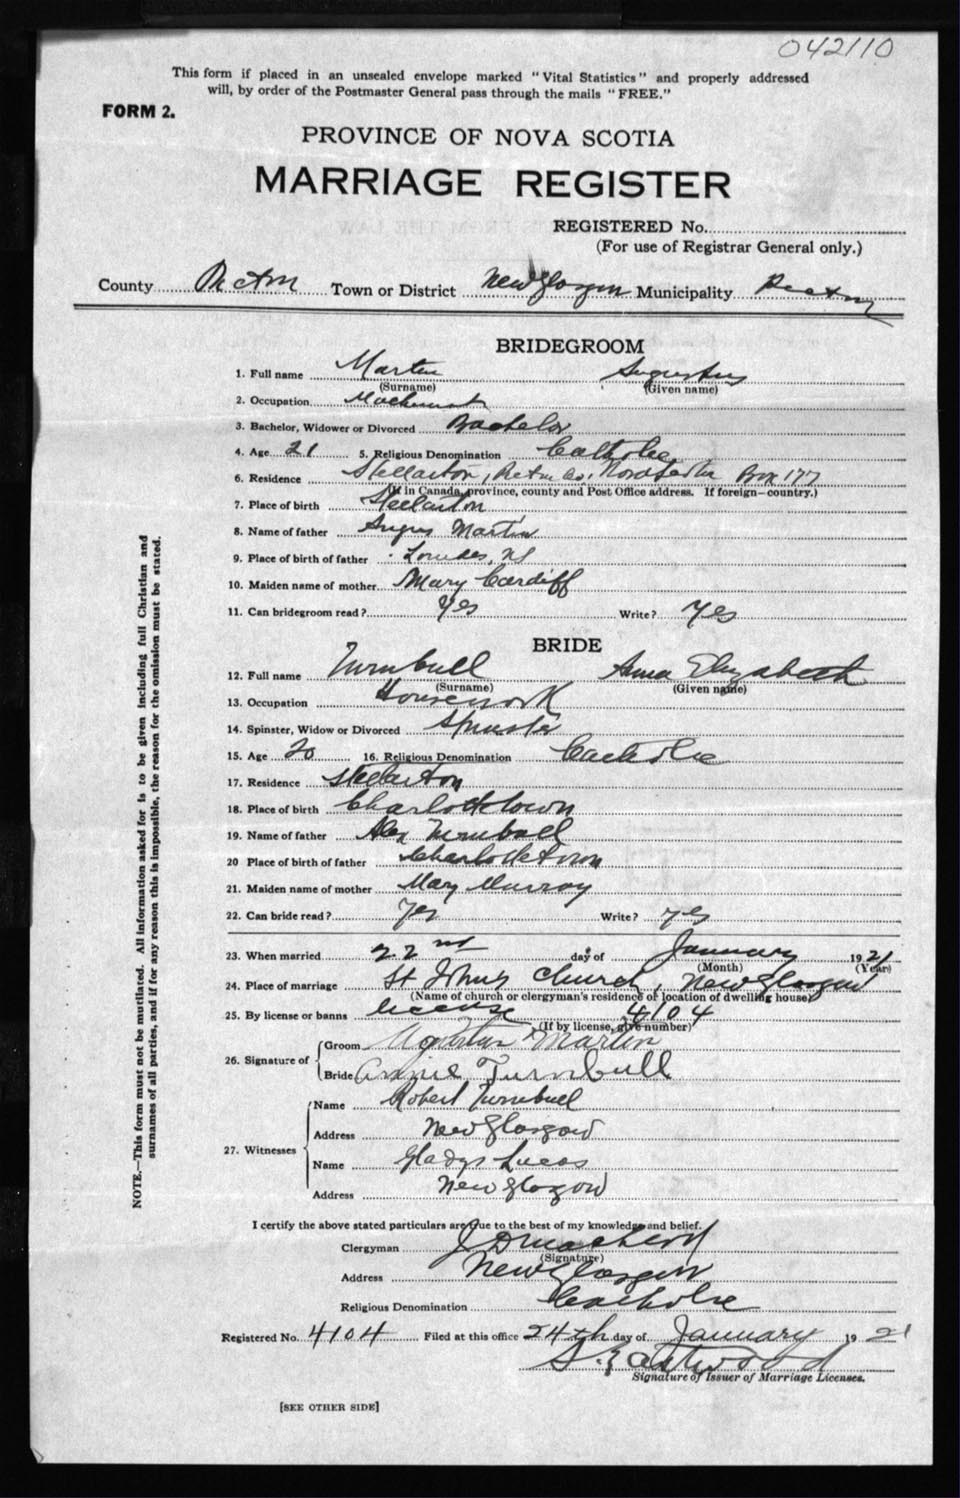 042110
This form if placed in an unsealed envelope marked "Vital Statistics" and properly addressed
will, by order of the Postmaster General pass through the mails "FREE."
FORM 2.
PROVINCE OF NOVA SCOTIA
MARRIAGE REGISTER
REGISTERED No.
(For use of Registrar General only.)
County Pictou Town or District New Glasgow Municipality Pictou
BRIDEGROOM
1. Full name Martin Augustus
(Surname) (Given name)
2. Occupation Machinist
3. Bachelor, Widower or Divorced Bachelor
4. Age 21 5. Religious Denomination Catholic
6. Residence Stellarton, Pictou Co, Nova Scotia Box 177
(If in Canada, province, county and Post Office address. If foreign—country.)
7. Place of birth Stellarton
8. Name of father Angus Martin
9. Place of birth of father Lourdes, NS
10. Maiden name of mother Mary Cardiff
11. Can bridegroom read? Yes Write? Yes
BRIDE
12. Full name Turnbull Anna Elizabeth
(Surname) (Given name)
13. Occupation Housework
14. Spinster, Widow or Divorced Spinster
15. Age 20 16. Religious Denomination Catholic
17. Residence Stellarton
18. Place of birth Charlottetown
19. Name of father Alex Turnbull
20 Place of birth of father Charlottetown
21. Maiden name of mother Mary Murray
22. Can bride read? Yes Write? Yes
23. When married 22nd day of January 1921
(Month) (Year)
24. Place of marriage St John's Church, New Glasgow
(Name of church or clergyman's residence or location of dwelling house)
25. By license or banns license 4104
(If by license, give number)
26. Signature of Groom Martin
Bride Annie Turnbull
27. Witnesses Name Robert Turnbull
Address New Glasgow
Name Gladys Lucas
Address New Glasgow
I certify the above stated particulars are true to the best of my knowledge and belief.
Clergyman
(Signature)
Address New Glasgow
Religious Denomination Catholic
Registered No. 4104 Filed at this office 24th day of January 1921
Signature of Issuer of Marriage Licenses.
[SEE OTHER SIDE]
NOTE.—This form must not be mutilated. All information asked for is to be given including full Christian and
surnames of all parties, and if for any reason this is impossible, the reason for the omission must be stated.